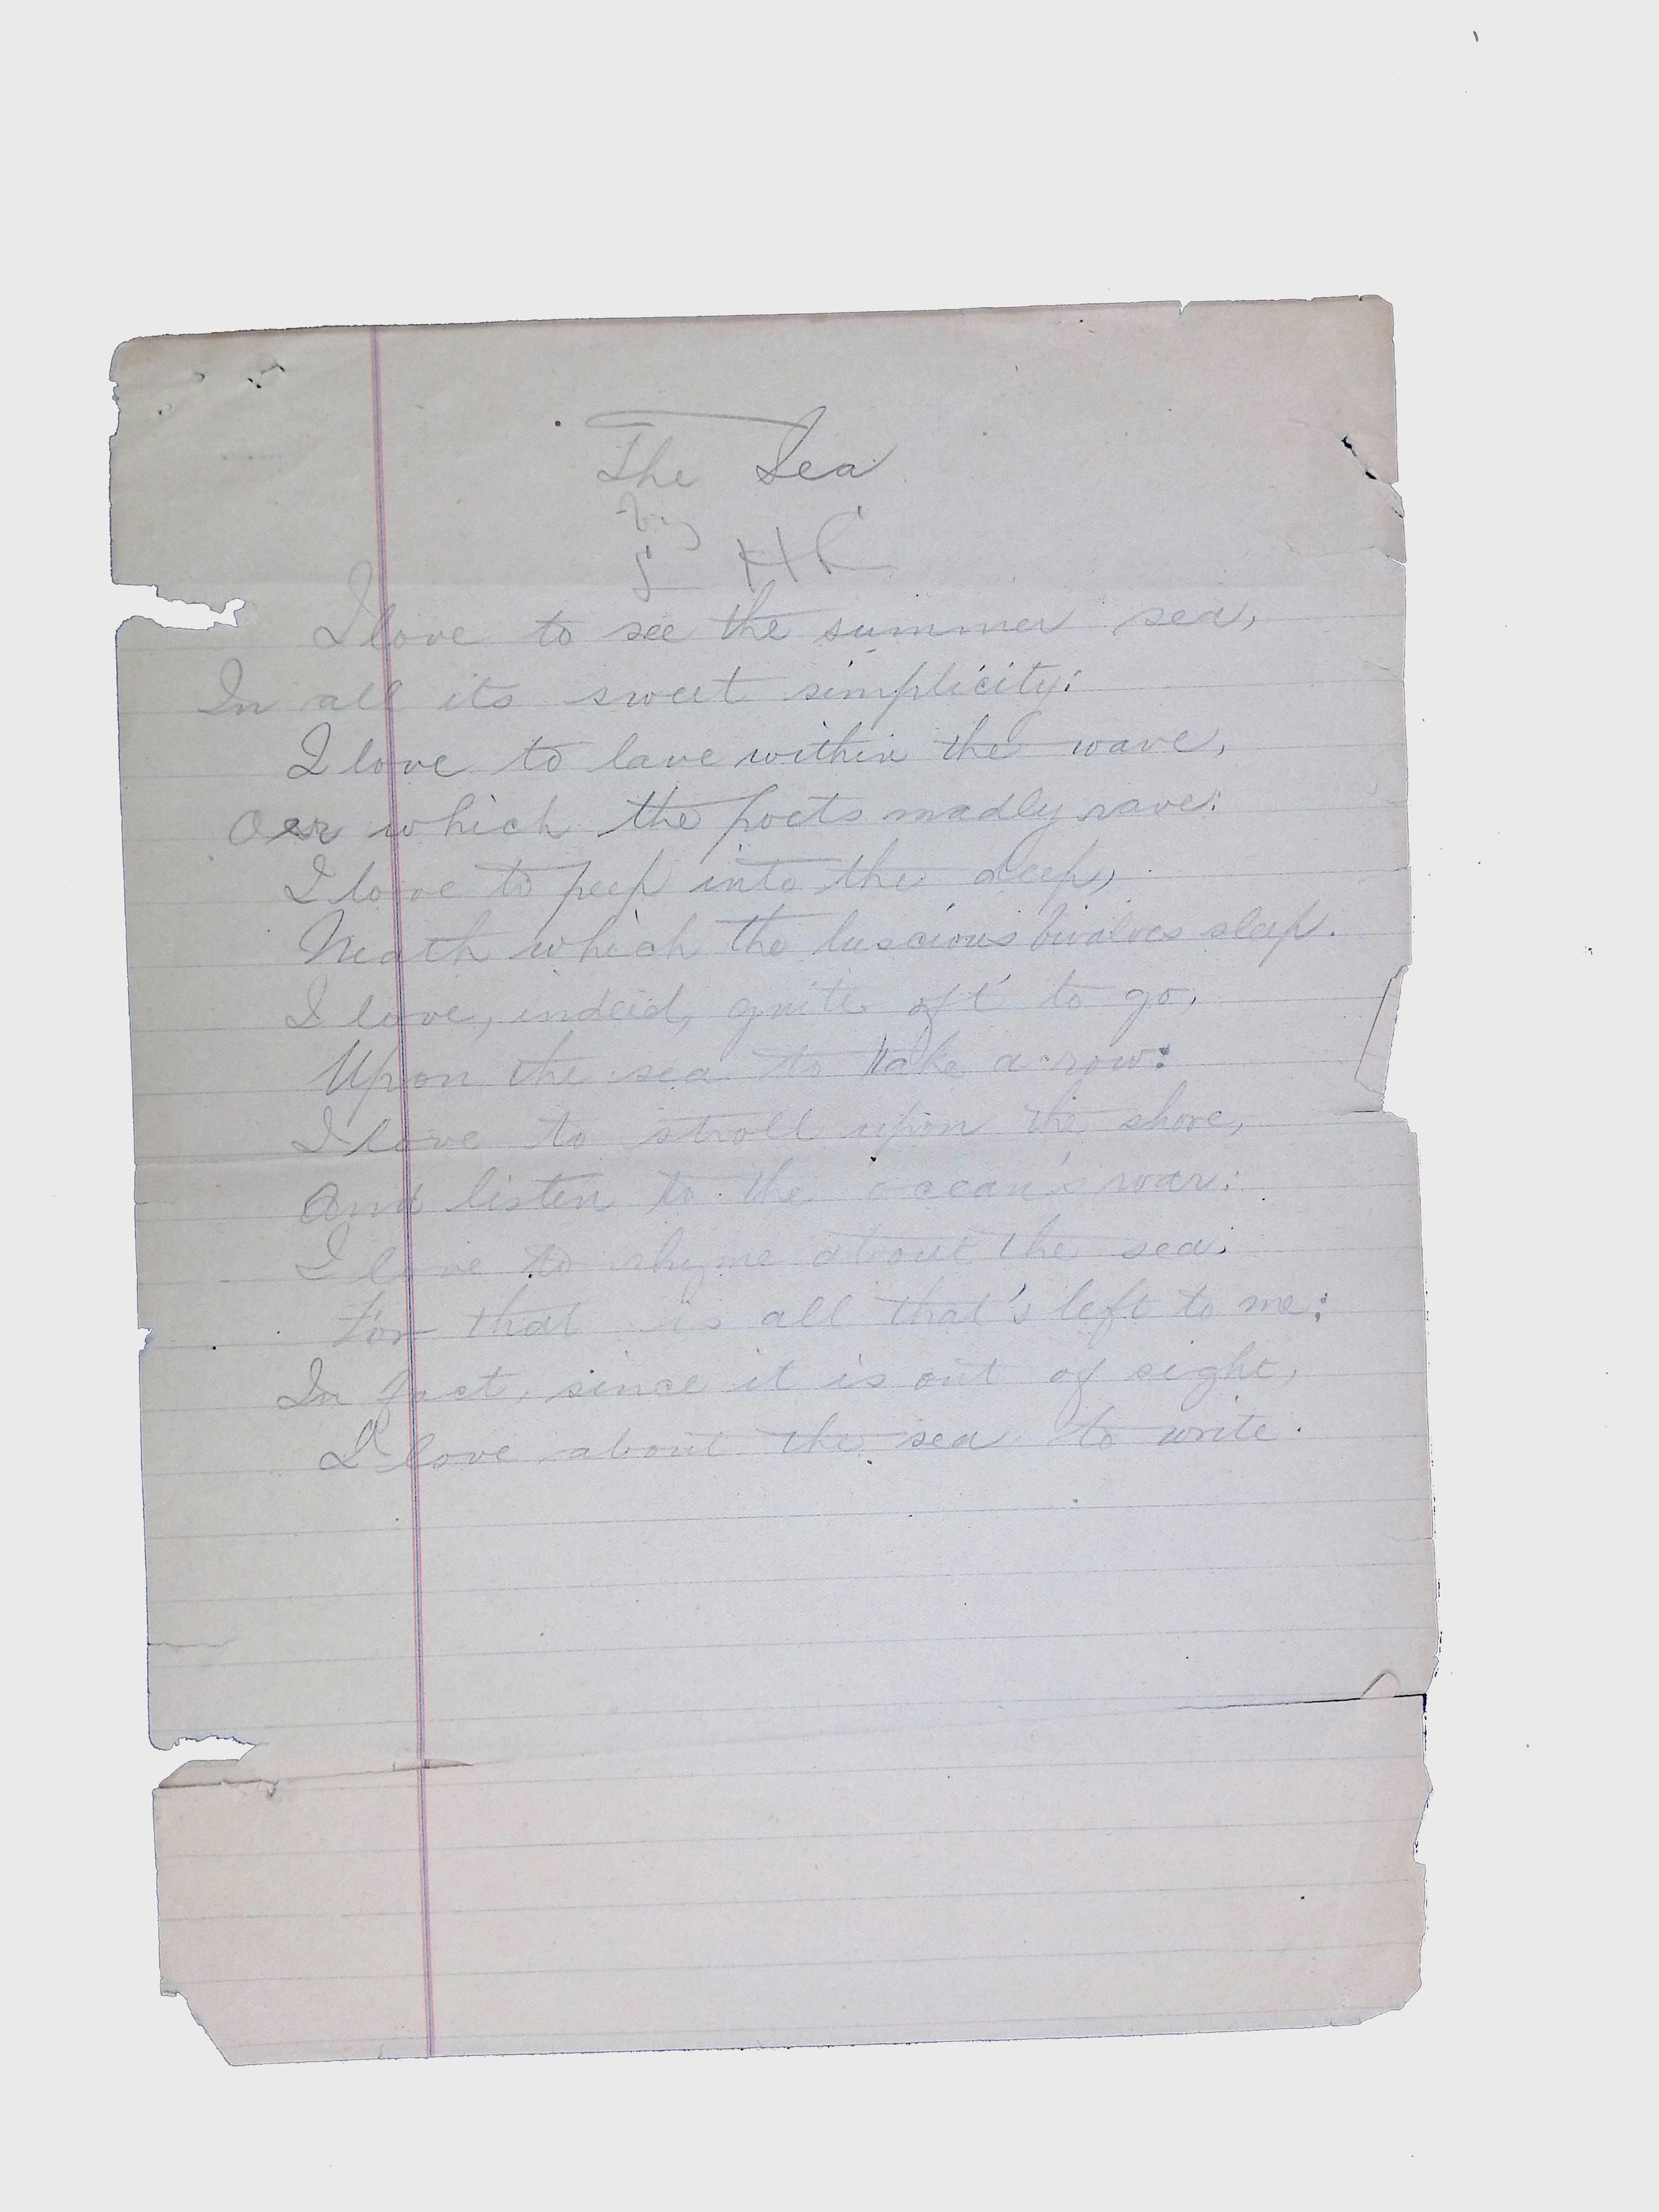 The Sea
by
L H C
I love to see the summer sea,
In all its sweet simplicity:
I love to lave within the wave,
Oer which the poets madly rave:
I love to peep into the deep,
Neath which the luscious bivalves sleep.
I love, indeed, quite oft to go,
Upon the sea to take a row:
I love to stroll upon the shore,
And listen to the ocean's roar:
I love to rhyme about the sea,
For that is all that's left to me:
In fact, since it is out of sight,
I love about the sea to write.